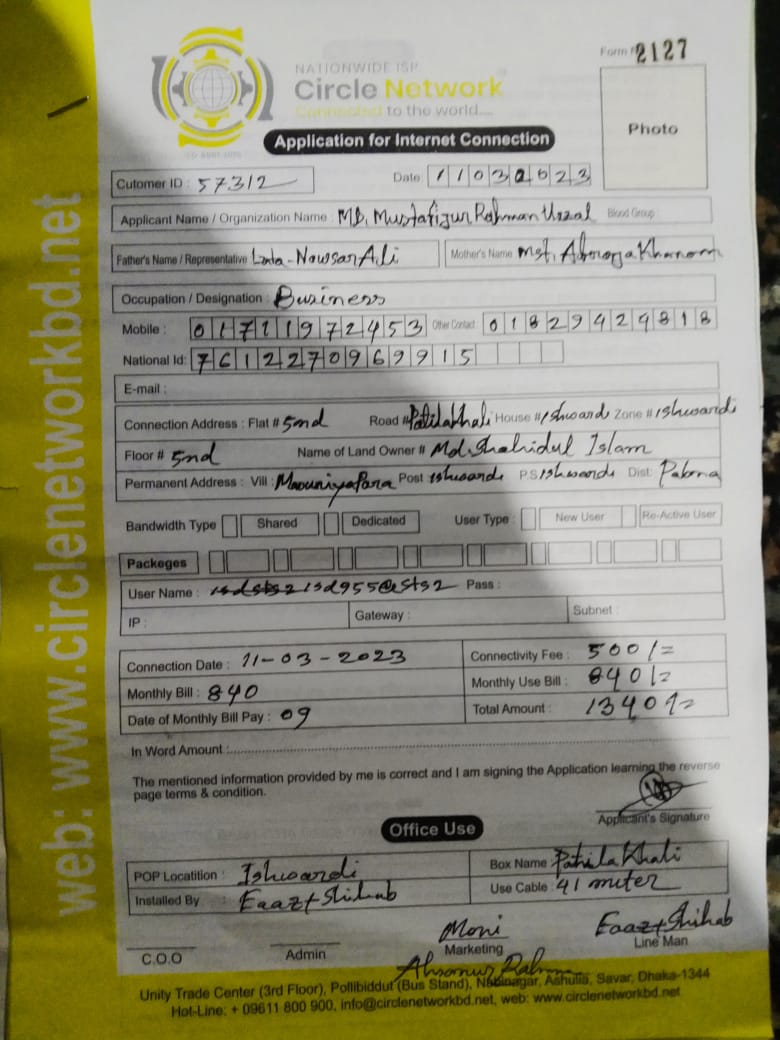 NATIONWIDE ISP
Circle Network
Connected to the world....
Form # 2127
Photo
Application for Internet Connection
Cutomer ID : 57312
Date : 11032023
Applicant Name / Organization Name : Md. Mustafizur Rahman Uzzal Blood Group :
Father's Name / Representative Late-Nowsar Ali Mother's Name : Mst. Khanom
Occupation / Designation : Business
Mobile : 01711972453 Other Contact : 01829429818
National Id: 7612270969915
E-mail :
Connection Address : Flat # 5nd Road # Patilakhali House # Ishwardi Zone # Ishwardi
Floor # 5nd Name of Land Owner # Md. Shahidul Islam
Permanent Address : Vill : Post Ishwardi P.S Ishwardi Dist: Pabna
Bandwidth Type Shared Dedicated User Type : New User Re-Active User
Packeges
User Name : isd955@sts2 Pass :
IP : Gateway : Subnet :
Connection Date : 11-03-2023 Connectivity Fee : 500/=
Monthly Bill : 840 Monthly Use Bill : 840/=
Date of Monthly Bill Pay : 09 Total Amount : 1340/=
In Word Amount :
The mentioned information provided by me is correct and I am signing the Application learning the reverse
page terms & condition.
Applicant's Signature
Office Use
POP Locatition : Ishwardi Box Name : Patila Khali
Installed By : Eaaz+Shihab Use Cable : 41 muter
Moni Eaaz+Shihab
C.O.O Admin Marketing Line Man
Unity Trade Center (3rd Floor), Pollibiddut (Bus Stand), Nabinagar, Ashulia, Savar, Dhaka-1344
Hot-Line: + 09611 800 900, info@circlenetworkbd.net, web: www.circlenetworkbd.net
web: www.circlenetworkbd.net